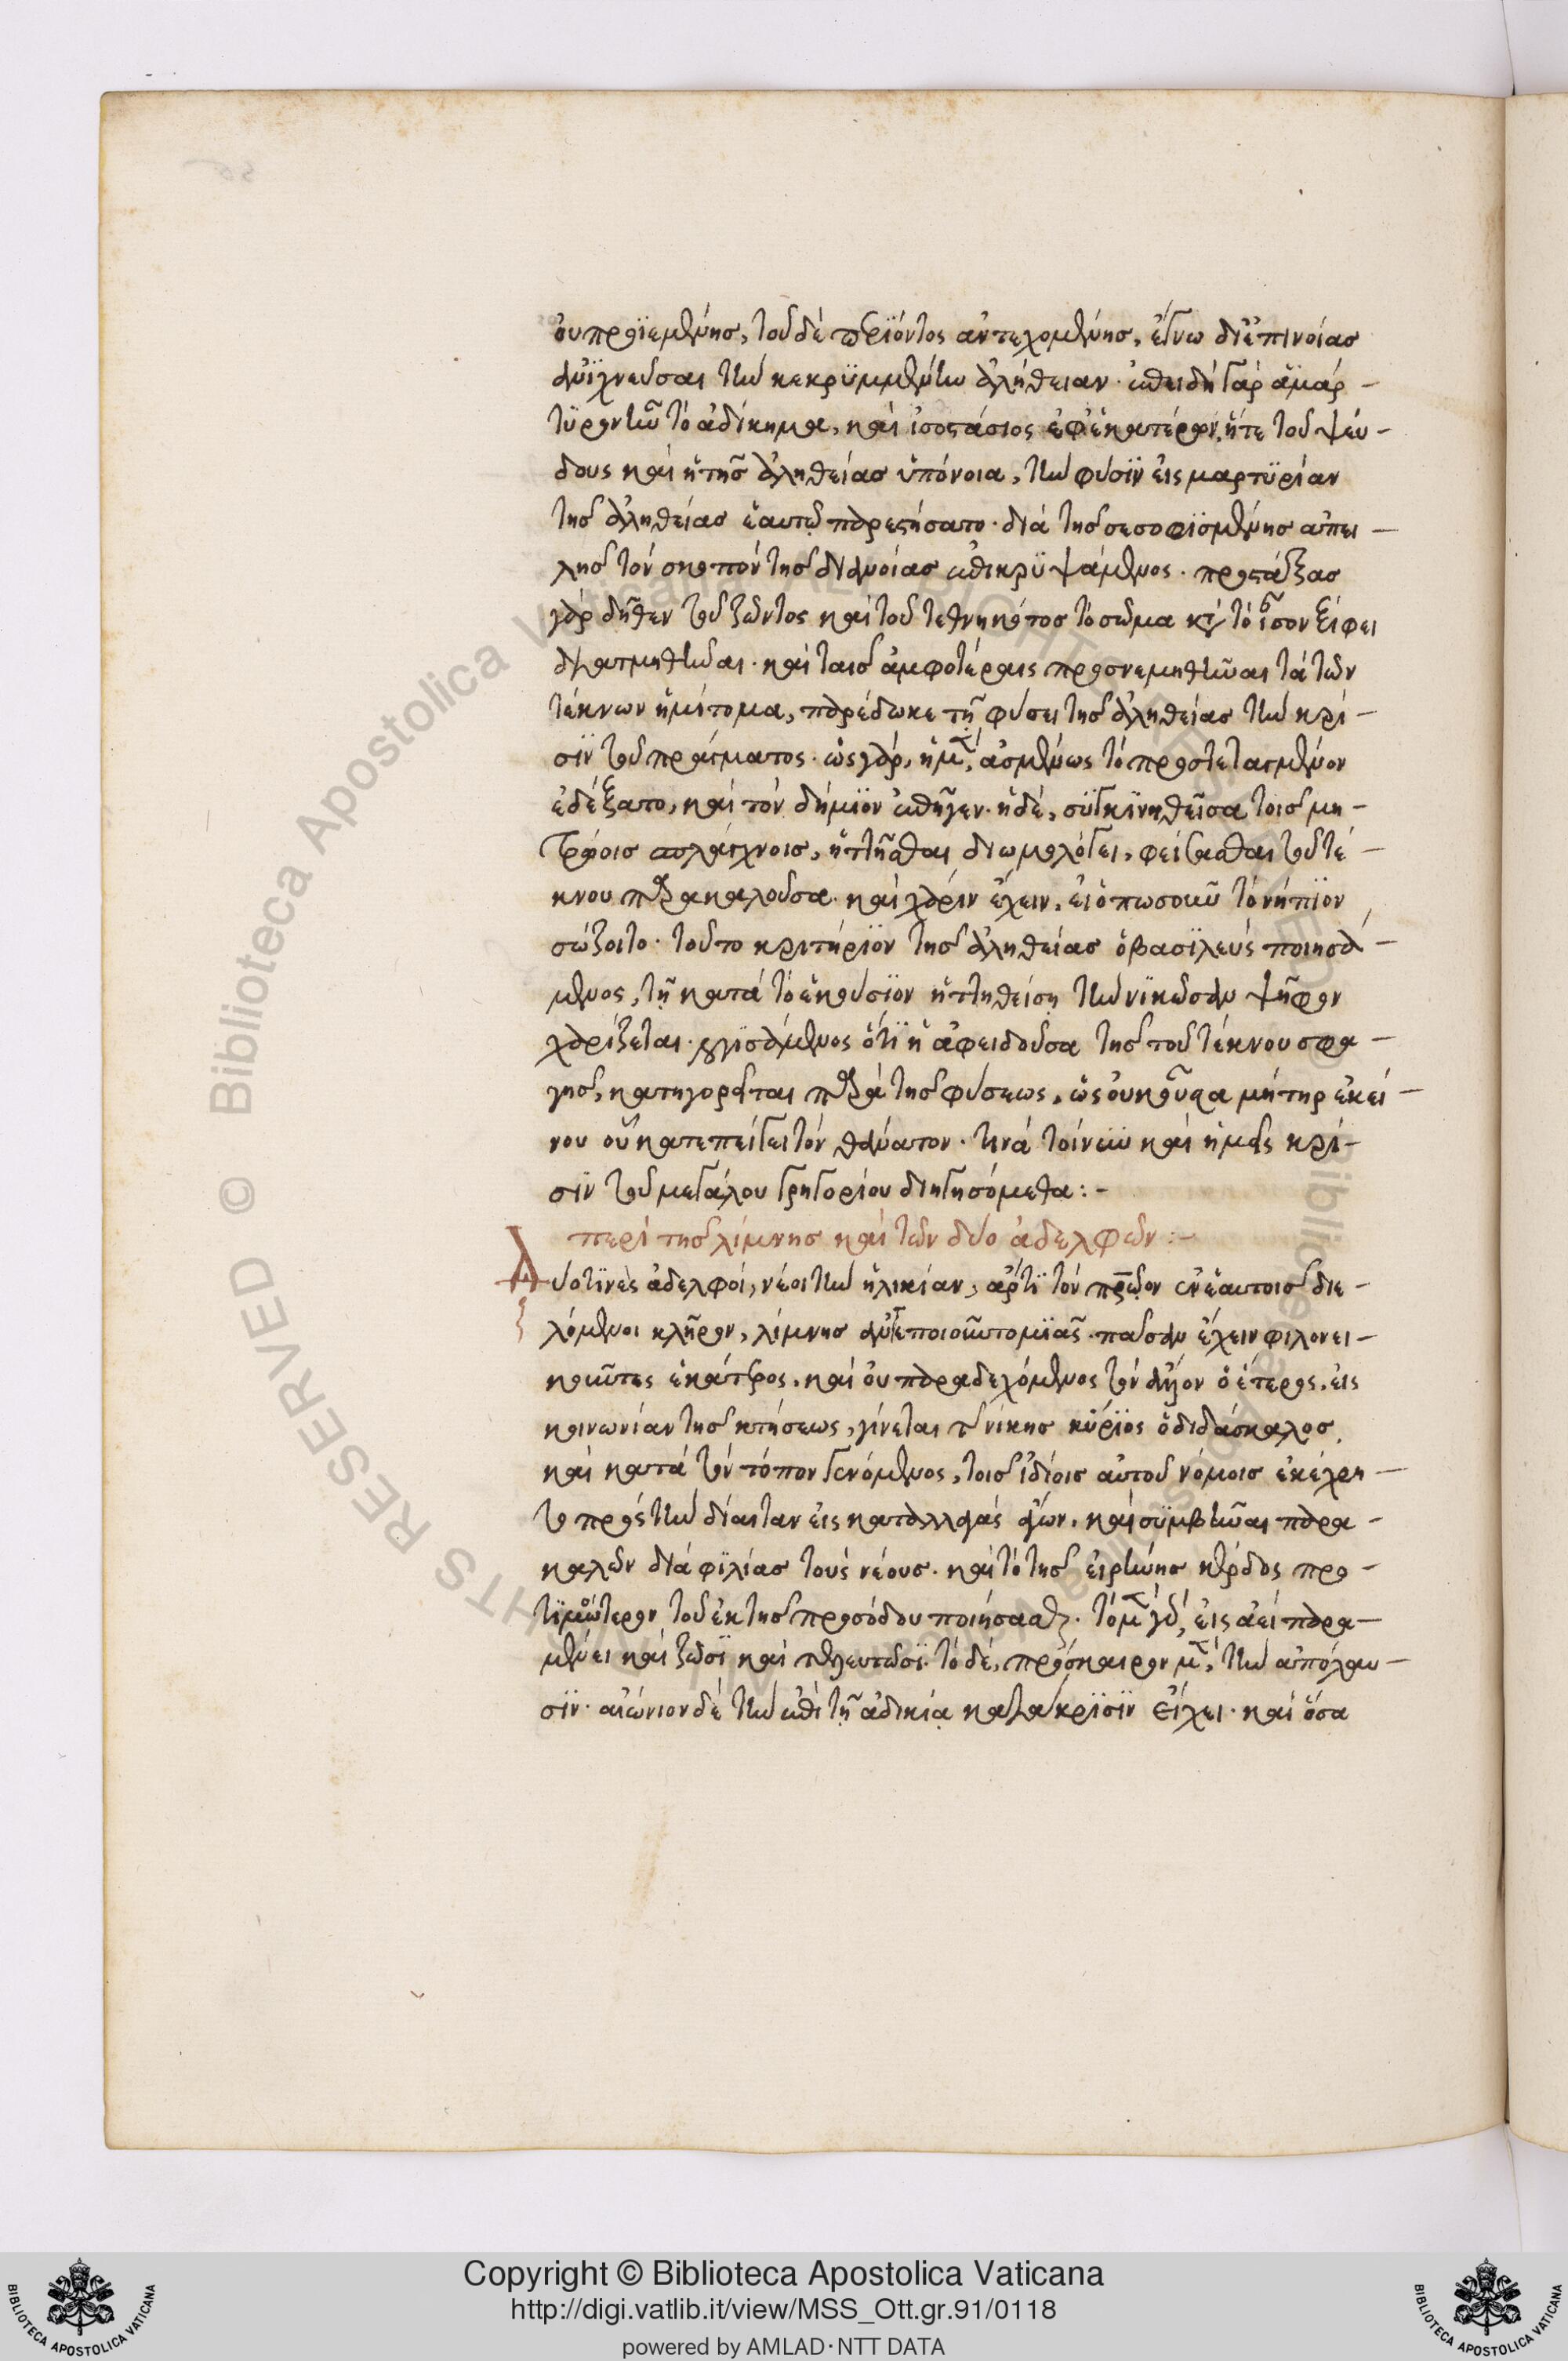 οὐ προϊεμένης, τοῦ δὲ περιόντος ἀντεχομένης, ἔγνω δι' ἐπινοίας
ἀνϊχνεῦσαι τὴν κεκρϋμμένην ἀλήθειαν· ἐπειδὴ γὰρ ἀμάρ-
τϋρον ἦν τὸ ἀδίκημα, καὶ ἰσοστάσιος ἐφ' ἑκατέρων, ἥτε τοῦ ψεύ-
δους καὶ ἡ τῆς ἀληθείας ὑπόνοια, τὴν φύσϊν εἰς μαρτϋρίαν
τῆς ἀληθείας ἑαυτῷ παρεστήσατο· διὰ τῆς σεσοφϊσμένης ἀπει-
λῆς τὸν σκοπὸν τῆς διανοίας ἐπικρϋψάμενος· προστάξας
γὰρ δῆθεν τοῦ ζῶντος καὶ τοῦ τεθνηκότος τὸ σῶμα κατὰ τὸ ἶσον ξίφει
διατμηθῆναι· καὶ ταῖς ἀμφοτέραις προσνεμηθῆναι τὰ τῶν
τέκνων ἡμίτομα, παρέδωκε τῇ φύσει τῆς ἀληθείας τὴν κρί-
σϊν τοῦ πράγματος· ὡς γὰρ, ἡ μὲν, ἀσμένως τὸ προστεταγμένον
ἐδέξατο, καὶ τὸν δήμϊον ἐπῆγεν· ἡ δὲ, σϋγκϊνηθεῖσα τοῖς μη-
τρῴοις σπλάγχνοις, ἡττῆσθαι διωμολόγει, φείσασθαι τοῦ τέ-
κνου παρακαλοῦσα· καὶ χάριν ἔχειν, εἰ ὁπωσοῦν τὸ νήπϊον
σώζοιτο· τοῦτο κριτήρϊον τῆς ἀληθείας ὁ βασϊλεὺς ποιησά-
μενος, τῇ κατὰ τὸ ἑκούσϊον ἡττηθείσῃ τὴν νϊκῶσαν ψῆφον
χαρίζεται· λογϊσάμενος ὅτϊ ἡ ἀφειδοῦσα τῆς τοῦ τέκνου σφα-
γῆς, κατηγορεῖται παρὰ τῆς φύσεως, ὡς οὐκ οὖσα μήτηρ ἐκεί-
νου οὗ κατεπείγει τὸν θάνατον· τινὰ τοίνυν καὶ ἡμεῖς κρί-
σϊν τοῦ μεγάλου Γρηγορίου διηγησόμεθα:-
περὶ τῆς λίμνης καὶ τῶν δύο ἀδελφῶν:-
Δύο τϊνὲς ἀδελφοὶ, νέοι τὴν ἡλικίαν, ἄρτϊ τὸν πατρῷον ἐν ἑαυτοῖς διε-
λόμενοι κλῆρον, λίμνης ἀντεποιοῦντο μϊᾶς· πᾶσαν ἔχειν φιλονει-
κοῦντες ἑκάτερος, καὶ οὐ παραδεχόμενος τὸν ἄλλον ὁ ἕτερος, εἰς
κοινωνίαν τῆς κτήσεως, γίνεται τῆς νίκης κύρϊος ὁ διδάσκαλος,
καὶ κατὰ τὸν τόπον γενόμενος, τοῖς ἰδίοις αὐτοῦ νόμοις ἐκέχρη-
το πρὸς τὴν δίαιταν εἰς καταλλαγὰς ἄγων, καὶ σϋμβῆναι παρα-
καλῶν διὰ φϊλίας τοὺς νέους· καὶ τὸ τῆς εἰρήνης κέρδος προ-
τϊμότερον τοῦ ἐκ τῆς προσόδου ποιήσασθαι· τὸ μὲν γὰρ, εἰς ἀεὶ παρα-
μένει καὶ ζῶσϊ καὶ τελευτῶσϊ· τὸ δὲ, πρόσκαιρον μὲν, τὴν ἀπόλαυ-
σϊν· αἰώνιον δὲ τὴν ἐπὶ τῇ ἀδικίᾳ κατάκρϊσϊν ἔχει· καὶ ὅσα
Copyright © Biblioteca Apostolica Vaticana
http://digi.vatlib.it/view/MSS_Ott.gr.91/0118
powered by AMLAD·NTT DATA